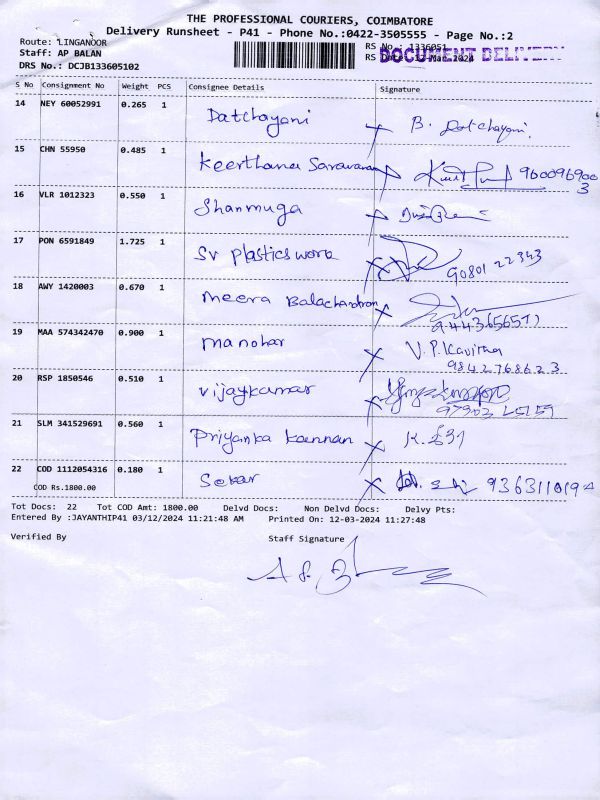 THE PROFESSIONAL COURIERS, COIMBATORE
Delivery Runsheet - P41 - Phone No.:0422-3505555 - Page No.:2
Route: LINGANOOR
RS No.: 1336051
Staff: AP BALAN
RS Date: 12-Mar-2024
DOCUMENT DELIVERY
DRS No.: DCJB133605102
S No Consignment No Weight PCS Consignee Details Signature
14 NEY 60052991 0.265 1 Datchayani B. Datchayani.
15 CHN 55950 0.485 1 Keerthana Saravanan 960096900
3
16 VLR 1012323 0.550 1 Shanmuga
17 PON 6591849 1.725 1 SV Plastics work
90801 22343
18 AWY 1420003 0.670 1 Meera Balachandran
19 MAA 574342470 0.900 1 Manohar V. P. Kavitha
9842768623
20 RSP 1850546 0.510 1 Vijaykumar
21 SLM 341529691 0.560 1 Priyanka Kannan
22 COD 1112054316 0.180 1 Sekar 9363110194
COD Rs.1800.00
Tot Docs: 22 Tot COD Amt: 1800.00 Delvd Docs: Non Delvd Docs: Delvy Pts:
Entered By :JAYANTHIP41 03/12/2024 11:21:48 AM Printed On: 12-03-2024 11:27:48
Verified By Staff Signature